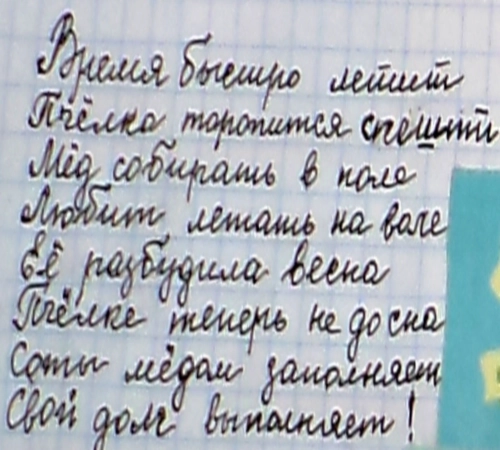 Время быстро летит
Пчёлка торопится спешит
Мёд собирать в поле
Любит летать на воле
Её разбудила весна
Пчёлке теперь не до сна
Соты мёдом заполняет
Свой долг выполняет!